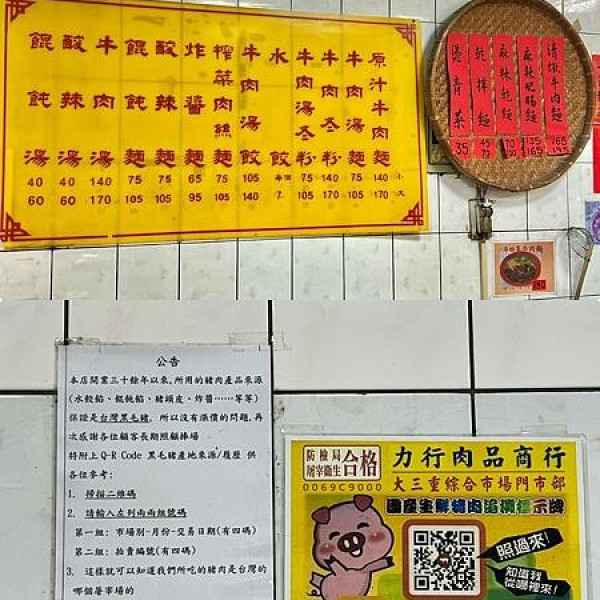 原汁牛肉麵 140 小 170 大
牛肉湯麵 75 105
牛肉冬粉 140 170
牛肉湯冬粉 75 105
水餃 每個 7.
牛肉湯餃 105 140
榨菜肉絲麵 75 105
炸醬麵 65 95
酸辣麵 75 105
餛飩麵 75 105
牛肉湯 140 170
酸辣湯 40 60
餛飩湯 40 60
清燉牛肉麵 165 195
麻辣肥腸麵 135 165
麻辣乾麵 70
乾拌麵 45
燙青菜 35
公告
本店開業三十餘年以來,所用的豬肉產品來源
(水餃餡、餛飩餡、豬頭皮、炸醬……等等)
保證是台灣黑毛豬, 所以沒有漲價的問題,再
次感謝各位顧客長期照顧捧場
特附上 Q-R Code 黑毛豬產地來源/履歷 供
各位參考:
1. 掃描二維碼
2. 請輸入左列兩兩組號碼
第一組: 市場別-月份-交易日期(有四碼)
第二組: 拍賣編號(有四碼)
3. 這樣就可以知道我們所吃的豬肉是台灣的
哪個屠宰場的
防檢局
屠宰衛生
合格
0069C9000
力行肉品商行
大三重綜合市場門市部
國產生鮮豬肉追溯標示牌
照過來!
知道我
從哪裡來!